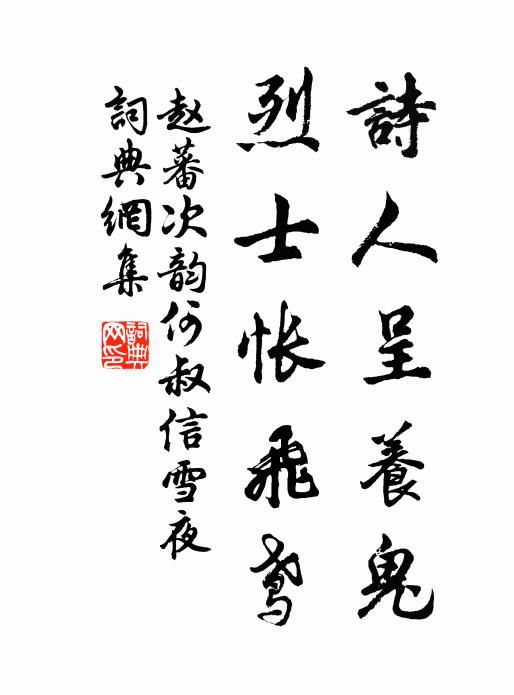 詩人呈養鬼
烈士怅飛鸢
赵蕃次韵何叔信雪夜
詞典網集
詞典網印